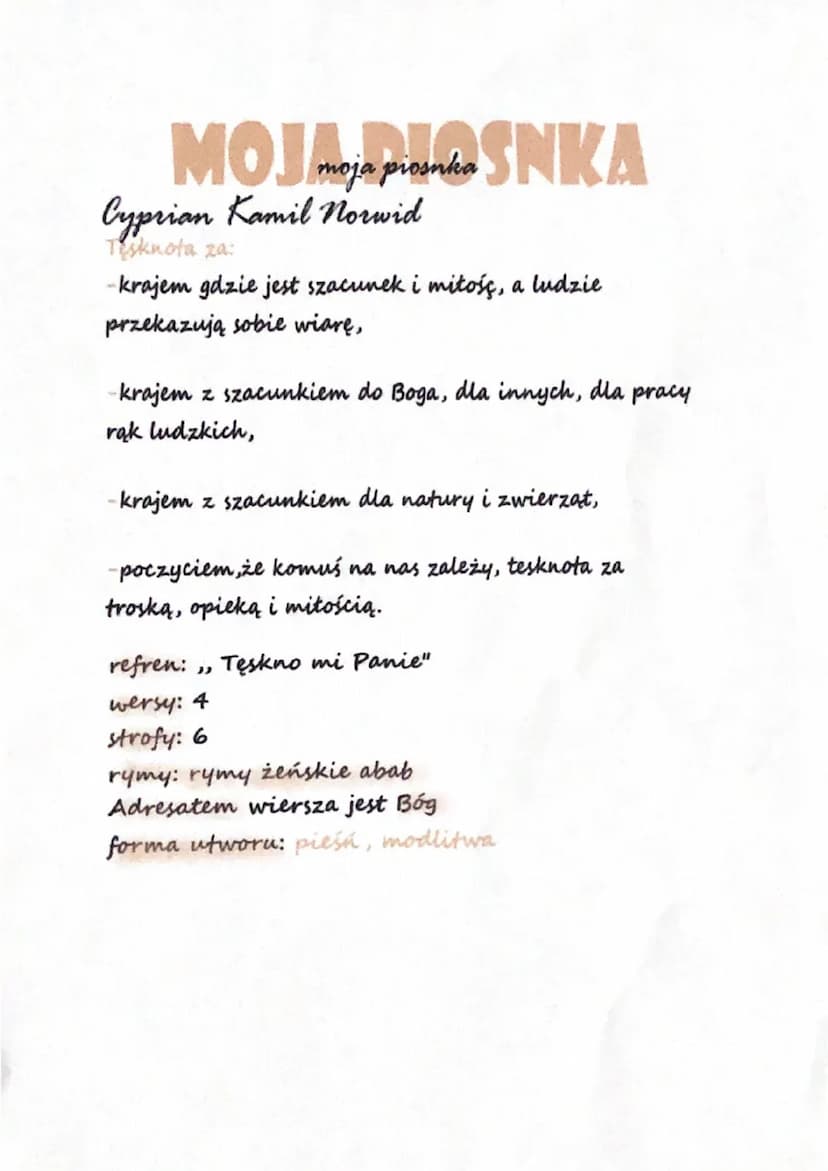 MOJA PIOSNKA
moja piosnka
Cyprian Kamil Norwid
Tęsknota za:
-krajem gdzie jest szacunek i miłośç, a ludzie
przekazują sobie wiarę,
-krajem z szacunkiem do Boga, dla innych, dla pracy
rąk ludzkich,
-krajem z szacunkiem dla natury i zwierząt,
-poczyciem,że komuś na nas zależy, tesknota za
troską, opieką i miłością.
refren: ,, Tęskno mi Panie"
wersy: 4
strofy: 6
rymy: rymy żeńskie abab
Adresatem wiersza jest Bóg
forma utworu: pieśń, modlitwa